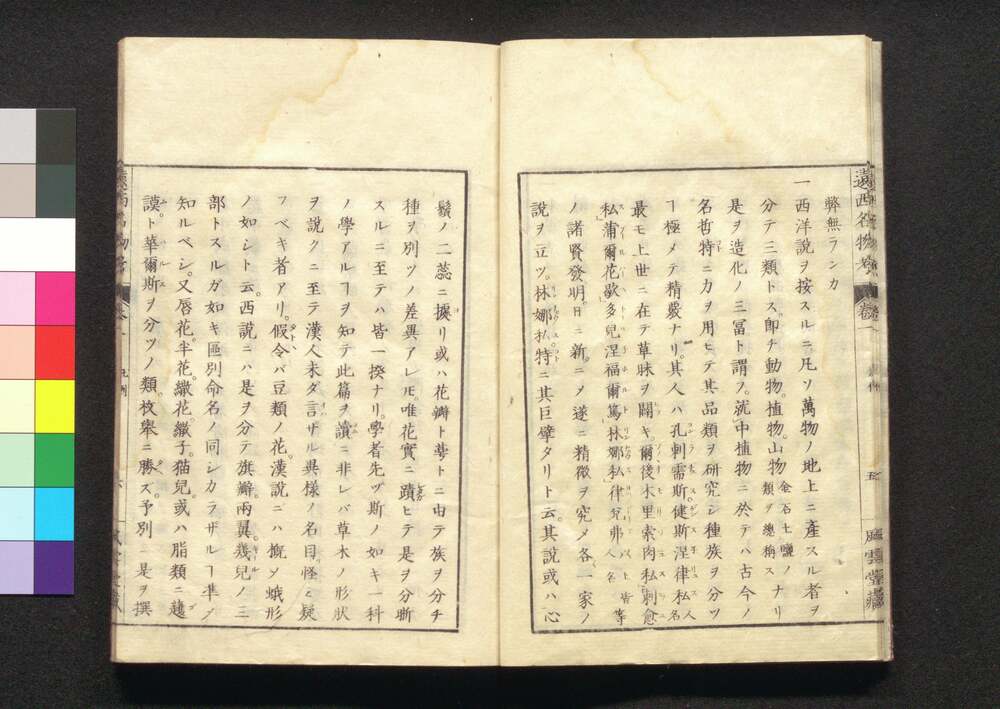 遠西名物考 卷一
弊無ランカ
一西洋說ヲ按スルニ凡ソ萬物ノ地上ニ產スル者ヲ
分テ三類トス。卽チ動物。植物。山物 金石土鹽ノ類ヲ總稱ス ナリ
是ヲ造化ノ三冨ト謂フ。就中植物ニ於テハ古今ノ
名哲特ニ力ヲ用ヒテ其品類ヲ研究シ種族ヲ分ツ
ヿ極メテ精覈ナリ。其人ハ孔剌需斯。健斯涅律私 人名
最モ上世ニ在テ草昧ヲ闢キ。爾後木里索肉私。剌愈
私。蒲爾花歇。多兒涅福爾篤。林娜私。律兒弗 以上皆人名 等
ノ諸賢發明。日ニ新ニメ遂ニ精微ヲ究メ各一家ノ
說ヲ立ツ。林娜私。特ニ其巨擘タリト云。其說或ハ心
鬚ノ二蕊ニ據リ或ハ花瓣ト萼トニ由テ族ヲ分チ
種ヲ別ツノ差異アレ𪜈。唯花實ニ蹟ヒテ是ヲ分晰
スルニ至テハ皆一揆ナリ。學者先ヅ斯ノ如キ一科
ノ學アルヿヲ知テ此篇ヲ讀ニ非レバ草木ノ形狀
ヲ說クニ至テ漢人未ダ言ザル異樣ノ名目。怪ミ疑
フベキ者アリ。假令バ豆類ノ花。漢說ニハ槪メ蛾形
ノ如シト云。西說ニハ是ヲ分テ旗瓣。兩翼。幾兒ノ三
部トスルガ如キ區別命名ノ同シカラザルヿ準ヘ
知ルベシ。又唇花。半花。繖花。繖子。猫兒。或ハ脂類ニ䕺
謨ト華爾斯ヲ分ツノ類。枚舉ニ勝ズ。予別ニ是ヲ撰